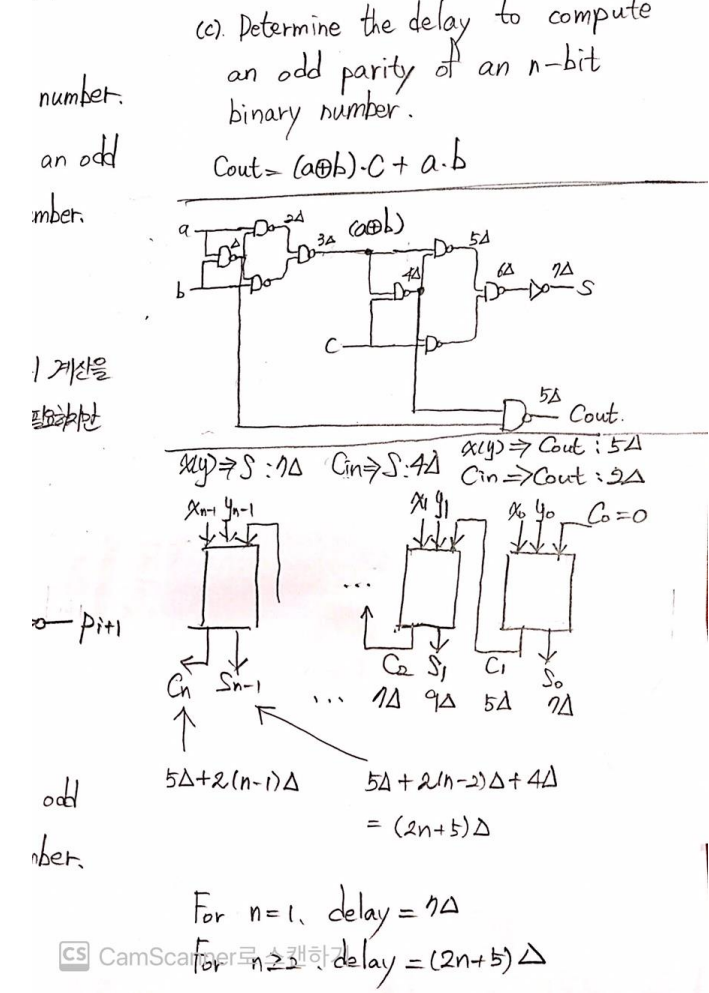 (c). Determine the delay to compute
an odd parity of an n-bit
binary number.
number.
an odd
mber.
Cout = (a⊕b)·C + a·b
a
b
Δ
2Δ
3Δ
(a⊕b)
4Δ
5Δ
6Δ
7Δ
S
C
5Δ
Cout.
계산을
필요하지만
x(y) ⇒ S : 7Δ Cin ⇒ S : 4Δ x(y) ⇒ Cout : 5Δ
Cin ⇒ Cout : 2Δ
Xn-1 Yn-1
X1 Y1
X0 Y0
C0 = 0
...
Pi+1
Cn Sn-1
C2 S1 C1 S0
... 7Δ 9Δ 5Δ 7Δ
5Δ+2(n-1)Δ
5Δ+2(n-2)Δ+4Δ
= (2n+5)Δ
odd
nber.
For n=1, delay = 7Δ
For n≥2, delay = (2n+5)Δ
CS CamScanner로 스캔하기